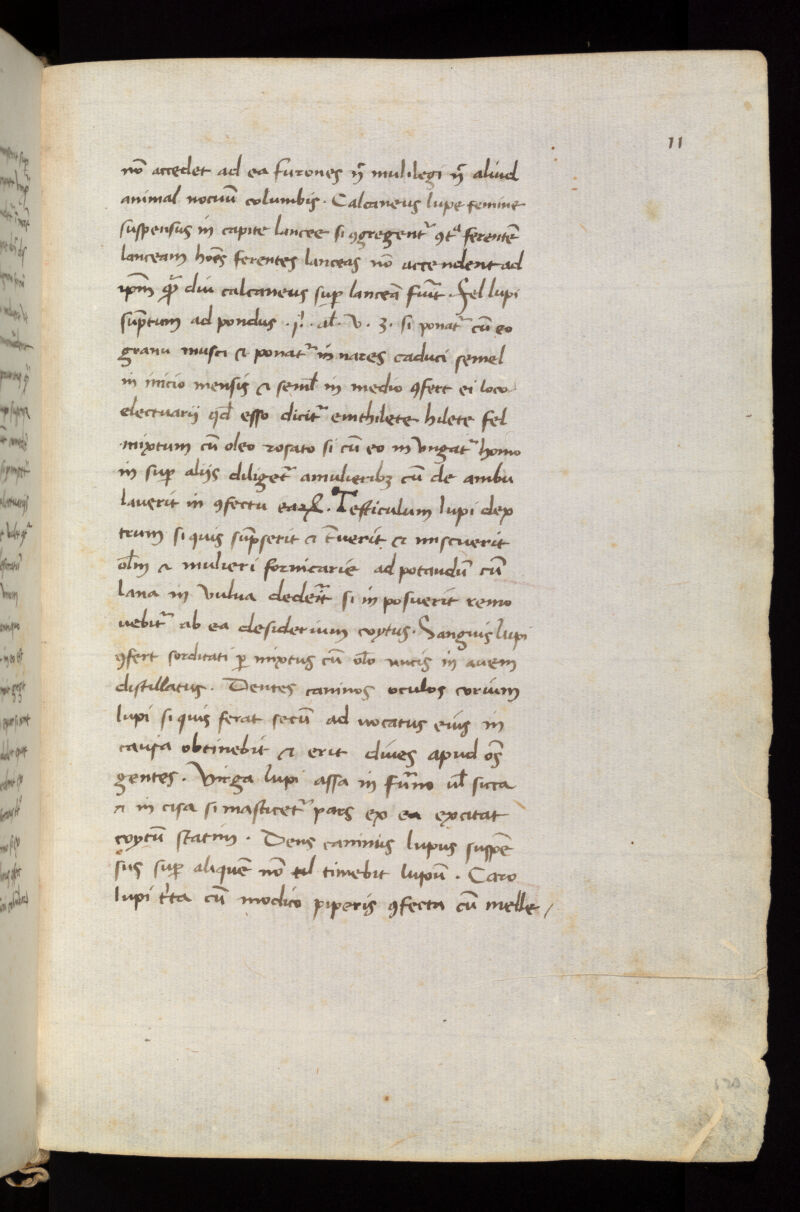 11
nō accedet ad ea furones nͫ mulilegi nͫ aliud
animal nocuū columbis . Calcaneus lupe femine
suspensus in capite lancee si ꝯgregentᷣ ꝯtᵃ ferentē
lanceam hoēs ferentes lanceas nō accendent ad
ipm̄ diu calcaneus sup̄ lanceā fuit . Fel lupi
sūptum ad pondus . ponatᷣ cū eo
granu musci ⁊ ponatᷣ in nares caduci semel
in inicio mensis ⁊ seml̄ in medio ꝯfert ei loco
electuarij qd̄ esso dicitᷣ emthilete hilete fel
mixtum cū oleo rosato si cū eo in ungatᷣ homo
in sup̄ alijs diligetᷣ amulieribꝫ cū de ambu
lauerit in ꝯfectu eaꝝ . Testiculum lupi dex
trum si quis sūpserit ⁊ t̄uerit ⁊ miscuerit
ol̄m ⁊ mulieri fornicarie ad potandū cū
lana in uulua dederit si in posuerit remo
uebitᷣ ab ea desiderium coytus . Sanguis lupi
ꝯfert sorditati ꝑ mixtus cū ol̄o nucis in auem
distillatus . Dentes caninos oculos corium
lupi si quis ferat secū ad uocatus eius in
causa obtinebit ⁊ erit diues apud oēs
gentes . Virga lupi assa in furno ul̄ sicca
⁊ in cisa si masticetᷣ pars ex ea excitat
coytū statim . Dens caninus lupus suspē
sus sup̄ aliquē nō timebit lupū . Caro
lupi t̄ta cū modico piperis ꝯfecta cū melle /